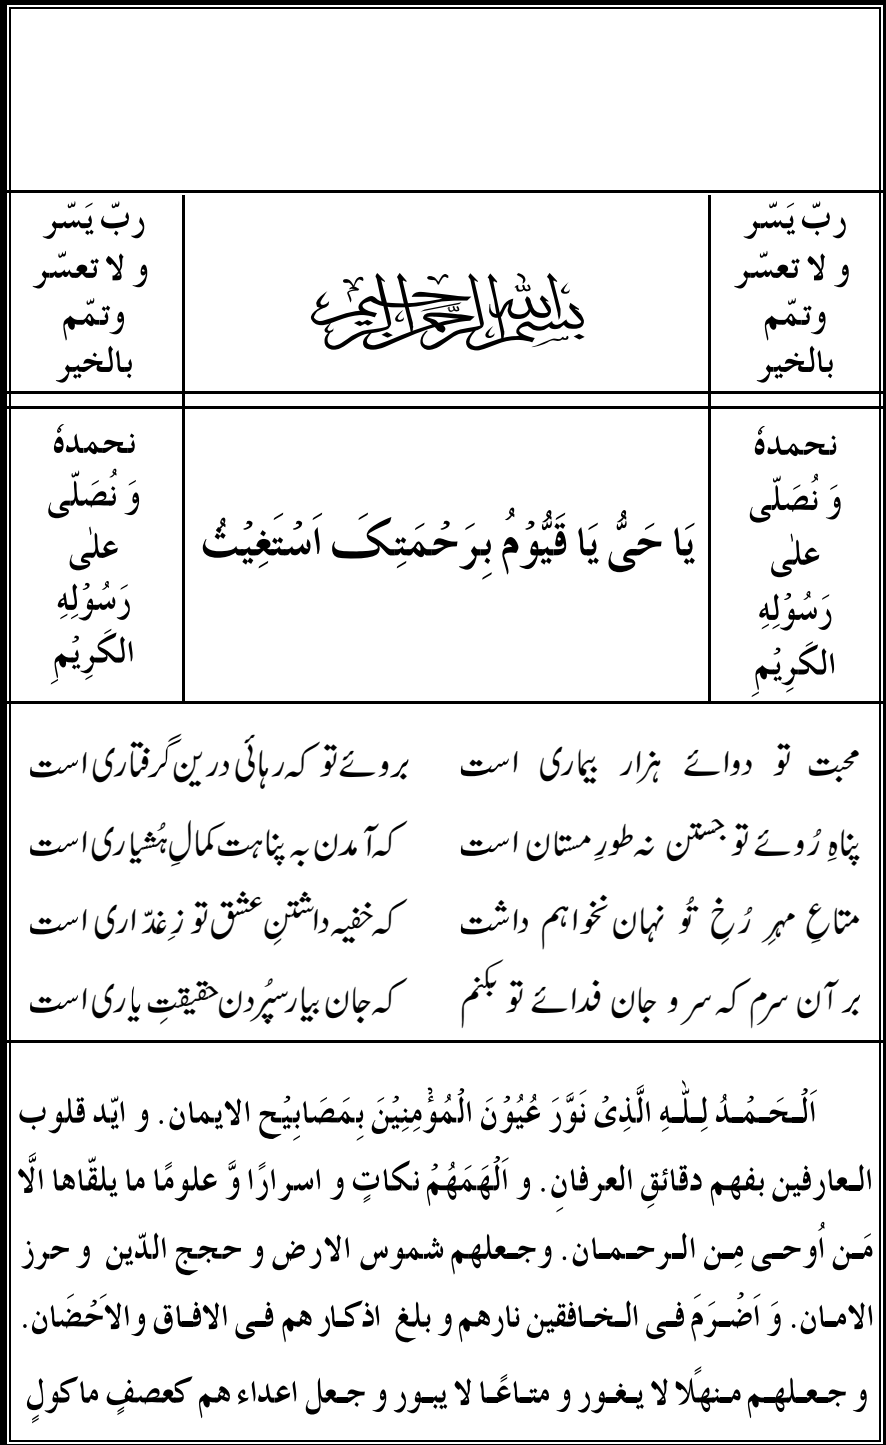 ربّ یَسّر
و لا تعسّر
وتمّم
بالخیر
بسم اللہ الرحمٰن الرحیم
ربّ یَسّر
و لا تعسّر
وتمّم
بالخیر
نحمدہٗ
وَ نُصَلّی
علٰی
رَسُوْلِهِ
الکَرِیْمِ
یَا حَیُّ یَا قَیُّوْمُ بِرَحْمَتِکَ اَسْتَغِیْثُ
نحمدہٗ
وَ نُصَلّی
علٰی
رَسُوْلِهِ
الکَرِیْمِ
محبت تو دوائے ہزار بیماری است بروئے تو کہ رہائی درین گرفتاری است
پناہِ رُوئے تو جستن نہ طورِ مستان است کہ آمدن بہ پناہت کمالِ ہُشیاری است
متاعِ مہرِ رُخِ تُو نہان نخواہم داشت کہ خفیہ داشتنِ عشق تو زِ غدّاری است
بر آن سرم کہ سر و جان فدائے تو بکنم کہ جان بیار سپُردن حقیقتِ یاری است
اَلْحَمْدُ لِلّٰهِ الَّذِیْ نَوَّرَ عُیُوْنَ الْمُؤْمِنِیْنَ بِمَصَابِیْحِ الایمان. و ایّد قلوب
العارفین بفهم دقائقِ العرفانِ. و اَلْهَمَهُمْ نکاتٍ و اسرارًا وَّ علومًا ما یلقّاها الَّا
مَن اُوحی مِن الرحمان. وجعلهم شموس الارض و حجج الدّین و حرز
الامان. وَ اَضْرَمَ فی الخافقین نارهم و بلغ اذکارهم فی الافاق والاَحْضَان.
و جعلهم منهلًا لا یغور و متاعًا لا یبور و جعل اعداء هم کعصفٍ ماکولٍ